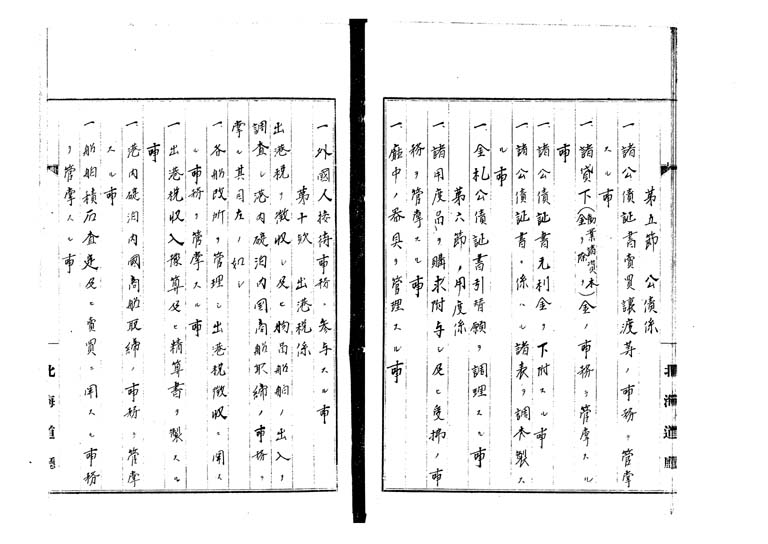 第五節 公債係
一諸公債証書賣買讓渡等ノ市務ヲ管掌
スル市
一諸貸下(勧業諸資本金ヲ除ク)金ノ市務ヲ管掌スル
市
一諸公債証書元利金ヲ下附スル市
一諸公債証書ニ係ハル諸表ヲ調査製ス
ル市
一金札公債証書引替願ヲ調理スル市
第六節 用度係
一諸用度品ヲ購求附与シ及ヒ受拂ノ市
務ヲ管掌スル市
一廳中ノ器具ヲ管理スル市
北海道廳
一外國人接待市務ニ参与スル市
第十欵 出港税係
出港税ヲ徴収シ及ヒ物品船舶ノ出入ヲ
調査シ港内碇泊内国商船取締ノ市務ヲ
掌ル其司左ノ如シ
一各船改所ヲ管理シ出港税徴収ニ関ス
ル市務ヲ管掌スル市
一出港税収入豫算及ヒ精算書ヲ製スル
市
一港内碇泊内國商船取締ノ市務ヲ管掌
スル市
一船舶積石査定及ヒ賣買ニ関スル市務
ヲ管掌スル市
北海道廳